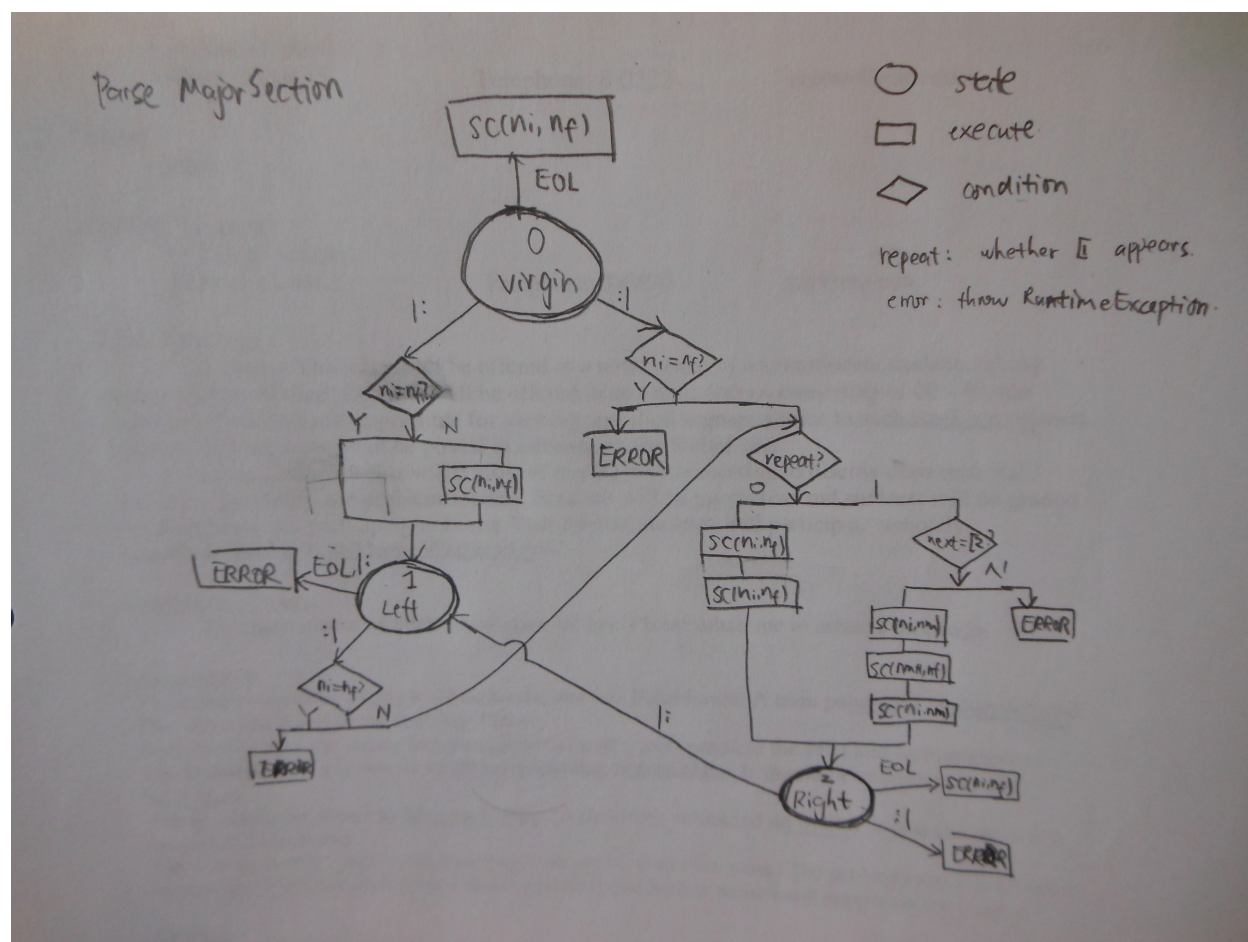 Parse MajorSection
state
execute
condition
repeat: whether [1 appears.
error: throw RuntimeException.
SC(ni, nf)
EOL
0
Virgin
|:
:|
ni=nf?
ni=nf?
Y
Y
N
ERROR
repeat?
SC(ni,nf)
0
1
SC(ni,nf)
next=[2?
ERROR
EOL|:
1
Left
SC(ni,nf)
N
SC(ni,nm)
ERROR
:|
ni=nf?
SC(ni,nm)
Y
N
|:
ERROR
2
Right
EOL
SC(ni,nf)
:|
ERROR